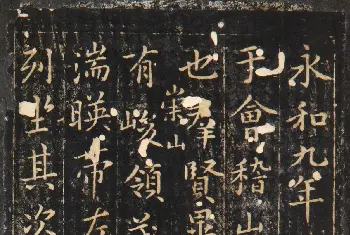 永和九年
于會稽山
也羣賢畢
崇山
有峻領茂
湍暎帶左
列坐其次